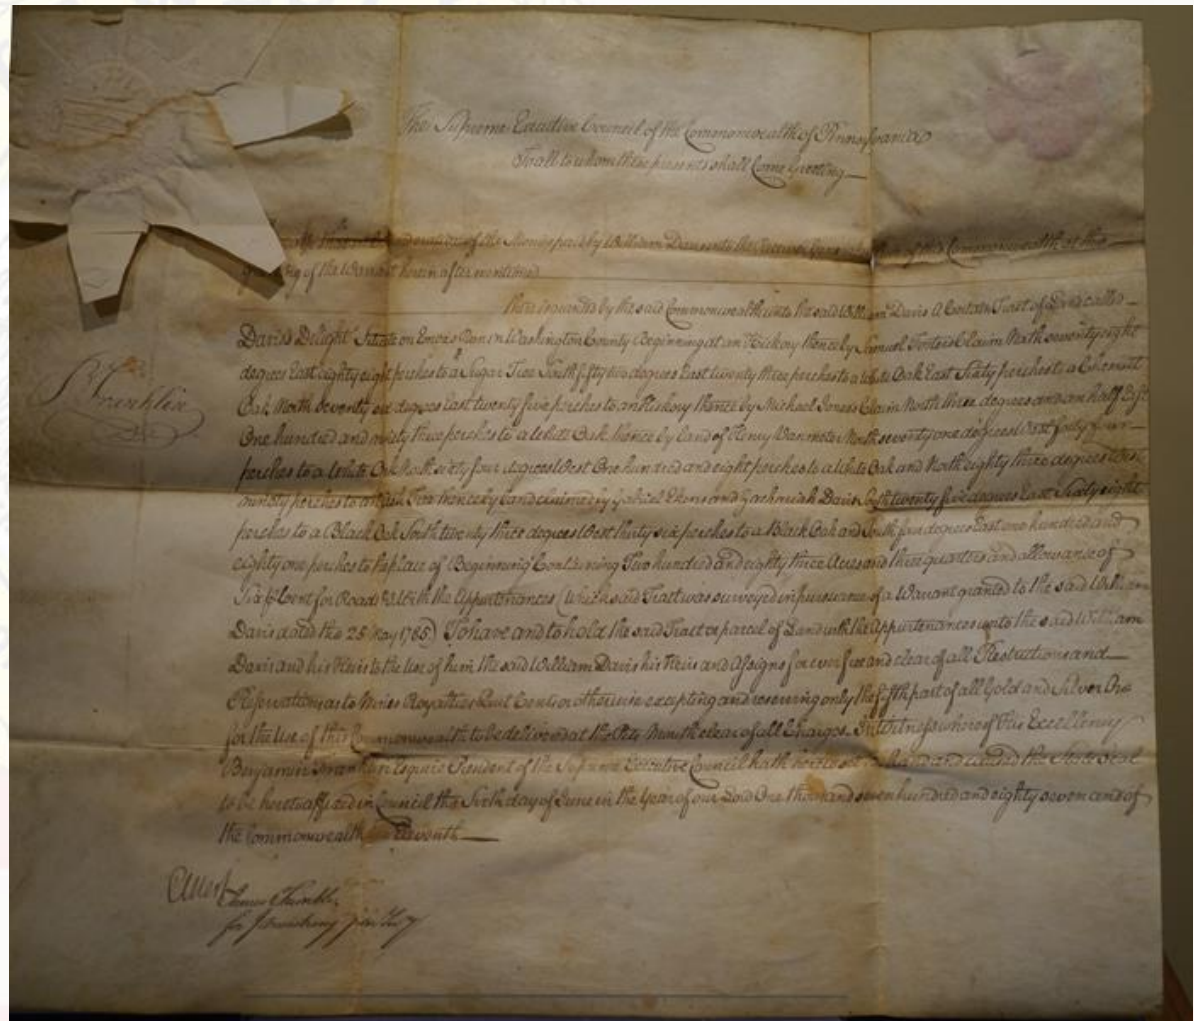 The Supreme Executive Council of the Commonwealth of Pennsylvania
To all to whom these presents shall Come Greeting
that in consideration of the Monies paid by William Davis into the Receiver General's Office of this Commonwealth at the
granting of the Warrant herein after mentioned
there is granted by the said Commonwealth unto the said William Davis A Certain Tract of Land called
Davis's Delight Situate on Run in Washington County Beginning at an Hickory thence by Samuel Claim North seventy eight
degrees East eighty eight perches to a Sugar Tree South fifty two degrees East twenty three perches to a White Oak East Sixty perches to a Chesnut
Oak North Seventy six degrees East twenty five perches to an Hickory thence by Michael Claim North three degrees and an half East
One hundred and ninety three perches to a White Oak thence by land of Henry Vanmeter North seventy one degrees West forty four
perches to a White Oak North sixty four degrees West One hundred and eight perches to a White Oak and North eighty three degrees West
ninety perches to an Ash Tree thence by Land claimed by Gabriel and Zachariah Davis South twenty five degrees East Sixty eight
perches to a Black Oak South twenty three degrees West thirty six perches to a Black Oak and South five degrees East one hundred and
eighty one perches to the place of Beginning Containing Two hundred and eighty three Acres and three quarters and allowance of
Six P Cent for Roads &c with the Appurtenances (which said Tract was surveyed in pursuance of a Warrant granted to the said William
Davis dated the 25 May 1785) To have and to hold the said Tract or parcel of Land with the Appurtenances unto the said William
Davis and his Heirs to the use of him the said William Davis his Heirs and Assigns for ever free and clear of all Restrictions and
Reservations as to Mines Royalties Quit Rents or otherwise excepting and reserving only the fifth part of all Gold and Silver Ore
for the use of this Commonwealth to be delivered at the Pits Mouth clear of all Charges. In Witness whereof His Excellency
Benjamin Franklin Esquire President of the Supreme Executive Council hath hereto set his hand and caused the State Seal
to be hereto affixed in Council the Sixth day of June in the Year of our Lord One thousand seven hundred and eighty seven and of
the Commonwealth the Eleventh
B Franklin
Attest
James Trimble
for Armstrong jun Secy